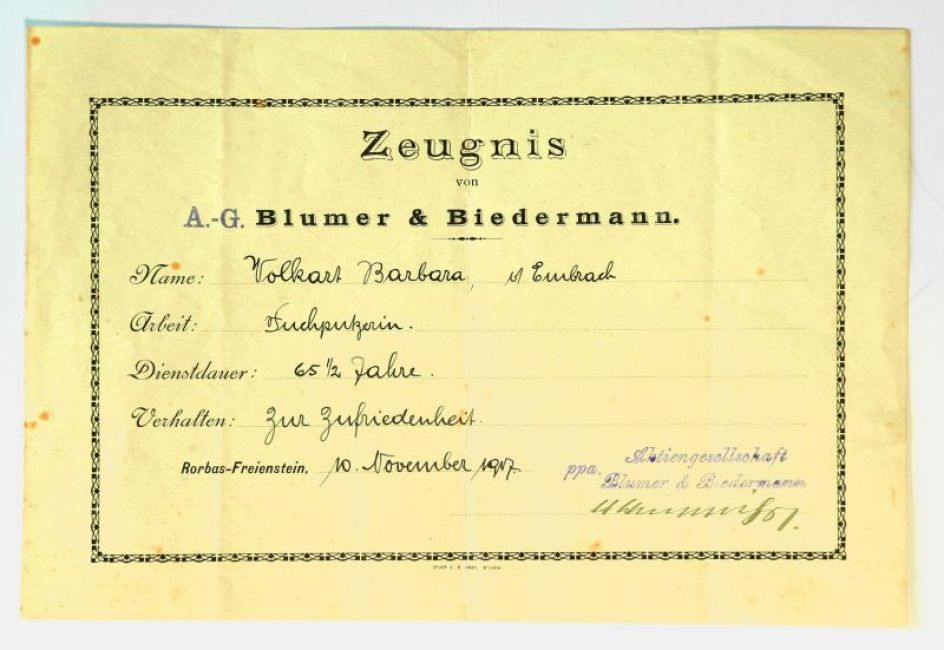 Zeugnis
von
A.-G. Blumer & Biedermann.
Name: Volkart Barbara, v/ Embrach
Arbeit: Tuchputzerin.
Dienstdauer: 65 1/2 Jahre.
Verhalten: Zur Zufriedenheit.
Rorbas-Freienstein, 10. November 1917.
Aktiengesellschaft
ppa. Blumer & Biedermann